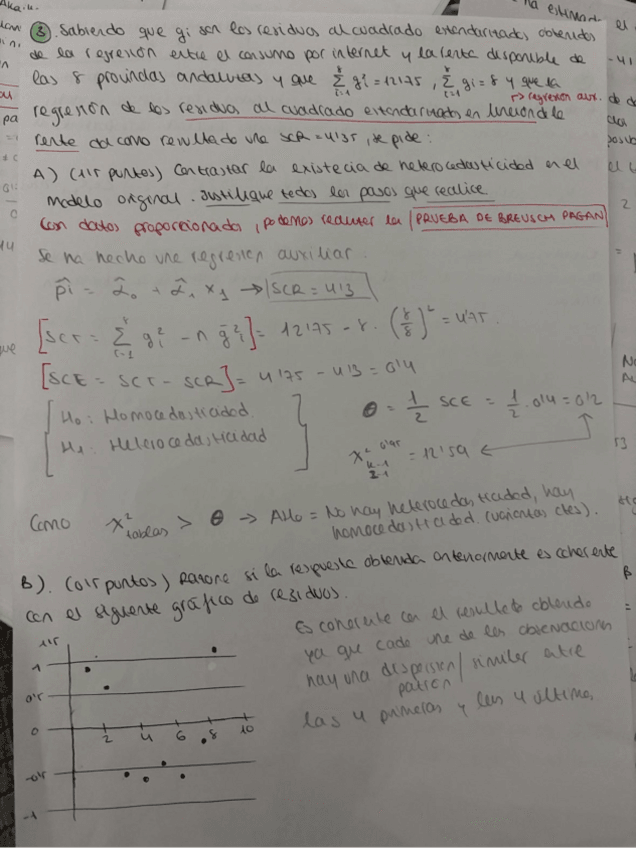 ③ Sabiendo que gi son los residuos al cuadrado estandarizados obtenidos
de la regresión entre el consumo por internet y la renta disponible de
las 8 provincias andaluzas y que Σ gi² = 12'75, Σ gi = 8 y que la
→ regresión aux.
regresión de los residuos al cuadrado estandarizados en función de la
renta da como resultado una SCR = 4'35, se pide:
A) (1'5 puntos) Contrastar la existecia de heterocedasticidad en el
modelo original. Justifique todos los pasos que realice
Con datos proporcionados, podemos realizar la PRUEBA DE BREUSCH PAGAN
Se ha hecho una regresión auxiliar.
p̂i = α̂0 + α̂1 x1 → SCR = 4'3
[SCT = Σ gi² - n ḡi²] = 12'75 - 8 · (8/8)² = 4'75
[SCE = SCT - SCR] = 4'75 - 4'3 = 0'4
H0: Homocedasticidad
H1: Heterocedasticidad
θ = 1/2 SCE = 1/2 · 0'4 = 0'2
χ² 0'95 k-1 2-1 = 12'59
Como χ² tablas > θ → AH0 = No hay heterocedasticidad, hay
homocedasticidad. (varianzas ctes).
B). (0'5 puntos) Razone si la respuesta obtenida anteriormente es coherente
con el siguiente gráfico de residuos.
Es coherente con el resultado obtenido
ya que cada una de las observaciones
hay una dispersión / similar entre
patrón
las 4 primeras y las 4 últimas
1'5
1
0'5
0
-0'5
-1
2 4 6 8 10